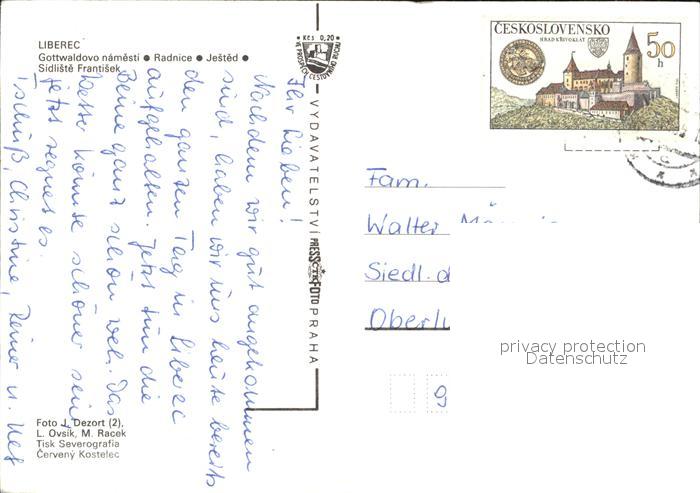 LIBEREC
Gottwaldovo náměstí ● Radnice ● Ještěd ●
Sídliště František
Kčs 0,20
VE PROSPĚCH CESTOVNÍHO RUCHU
VYDAVATELSTVÍ PRESSFOTO PRAHA
ČTK
ČESKOSLOVENSKO
HRAD KŘIVOKLÁT
50
h
Ihr Lieben!
Nachdem wir gut angekommen
sind, haben wir uns heute bereits
den ganzen Tag in Liberec
aufgehalten. Jetzt tun die
Beine ganz schön weh. Das
könnte schöner sein,
jetzt regnet es.
Tschüß, Christine, Reiner u.
Fam.
Walter
Siedl. d
Oberl
privacy protection
Datenschutz
Foto J. Dezort (2),
L. Ovsík, M. Racek
Tisk Severografia
Červený Kostelec